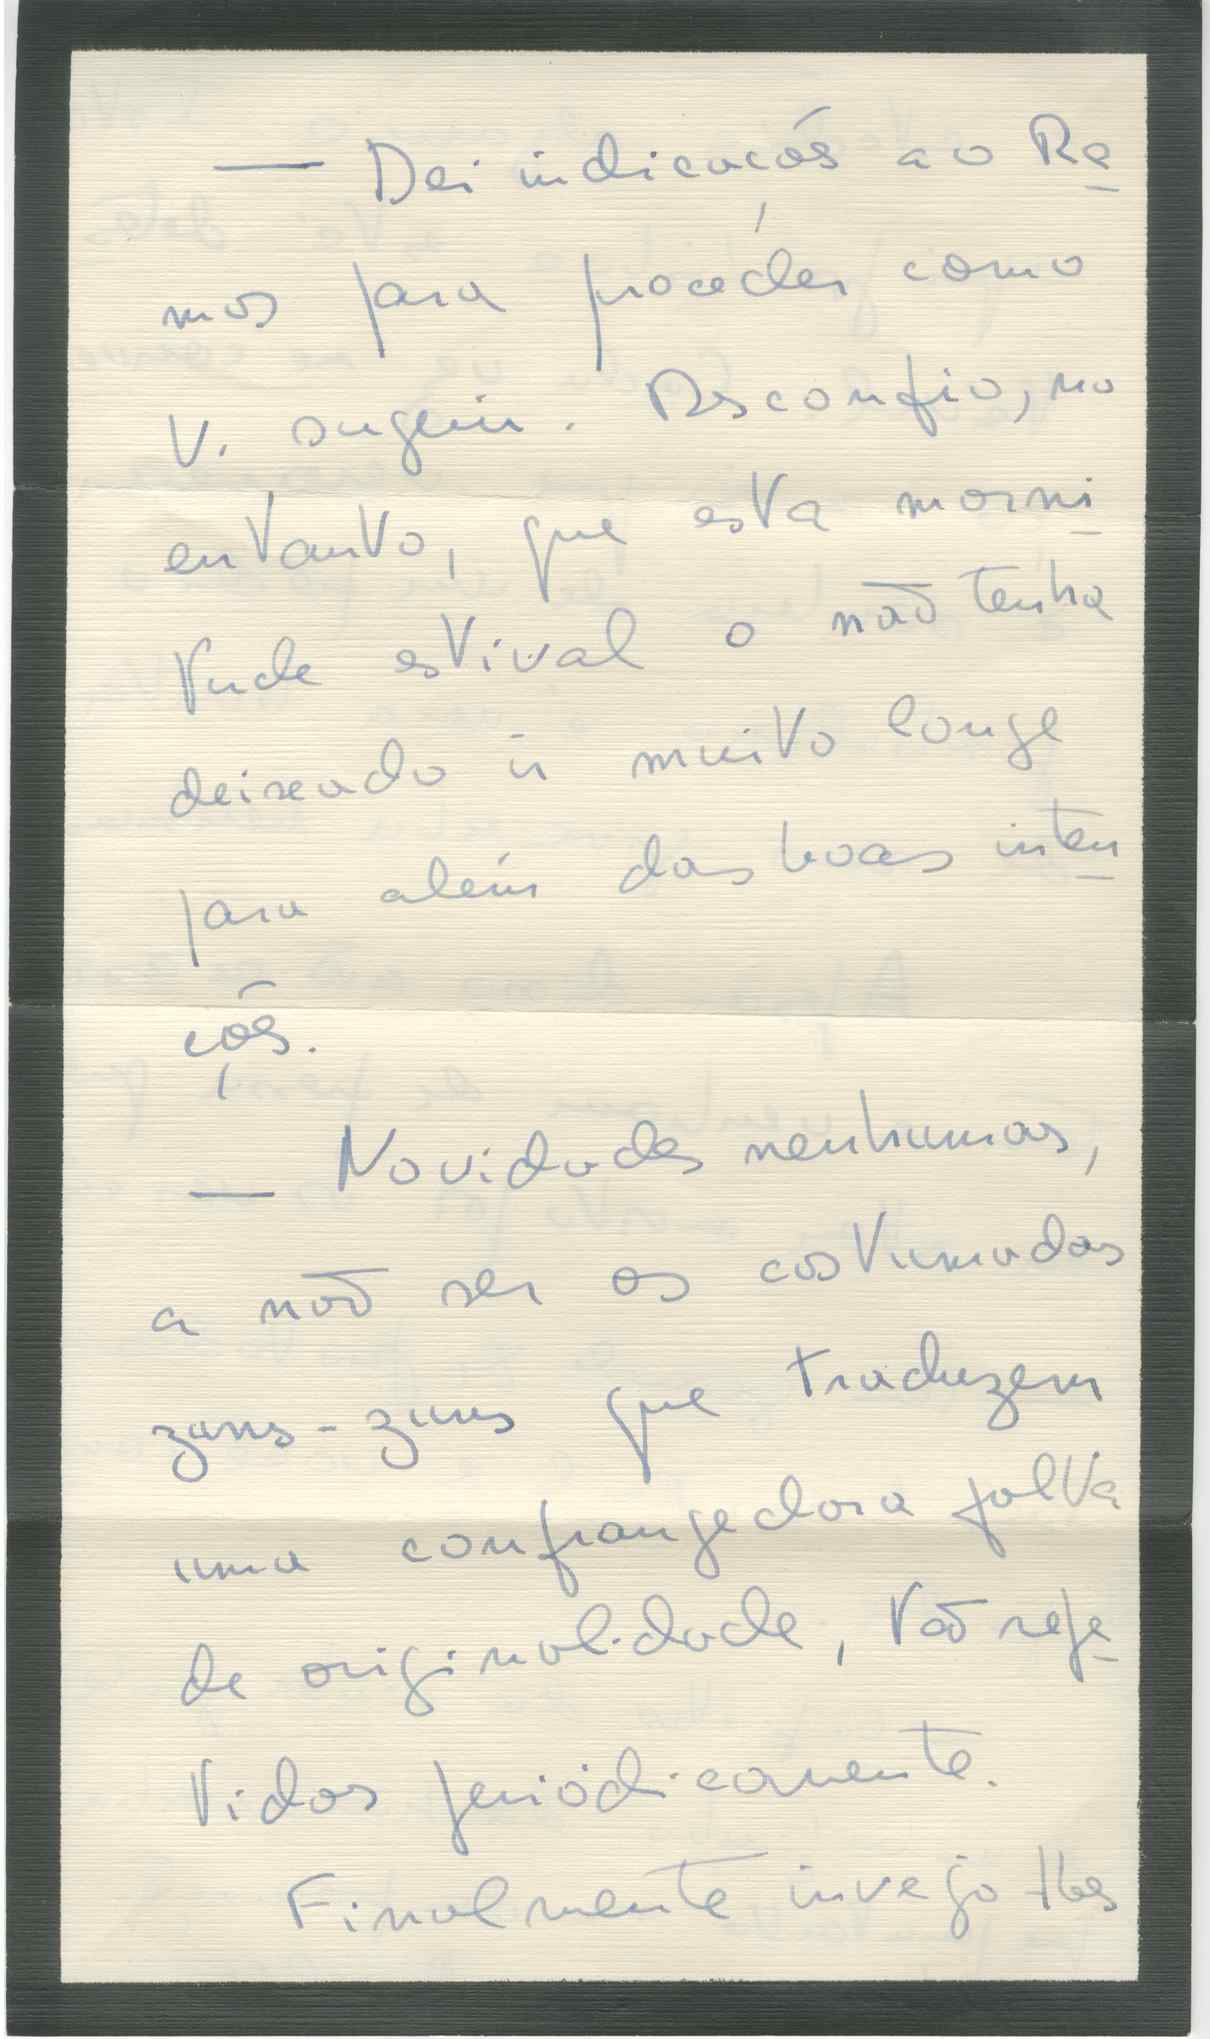 — Dei indicações ao Ra
mos para proceder como
V. sugeriu. Desconfio, no
entanto, que esta morni
tude estival o não tenha
deixado ir muito longe
para além das boas inten
ções.
— Novidades nenhumas,
a não ser os costumados
zuns-zuns que traduzem
uma confrangedora falta
de originalidade, tão repe
tidos periódicamente.
Finalmente invejo-lhes